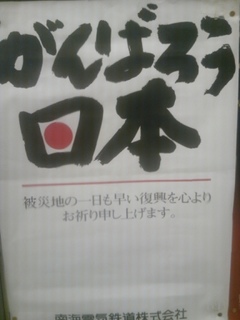 がんばろう
日本
被災地の一日も早い復興を心より
お祈り申し上げます。
南海電気鉄道株式会社